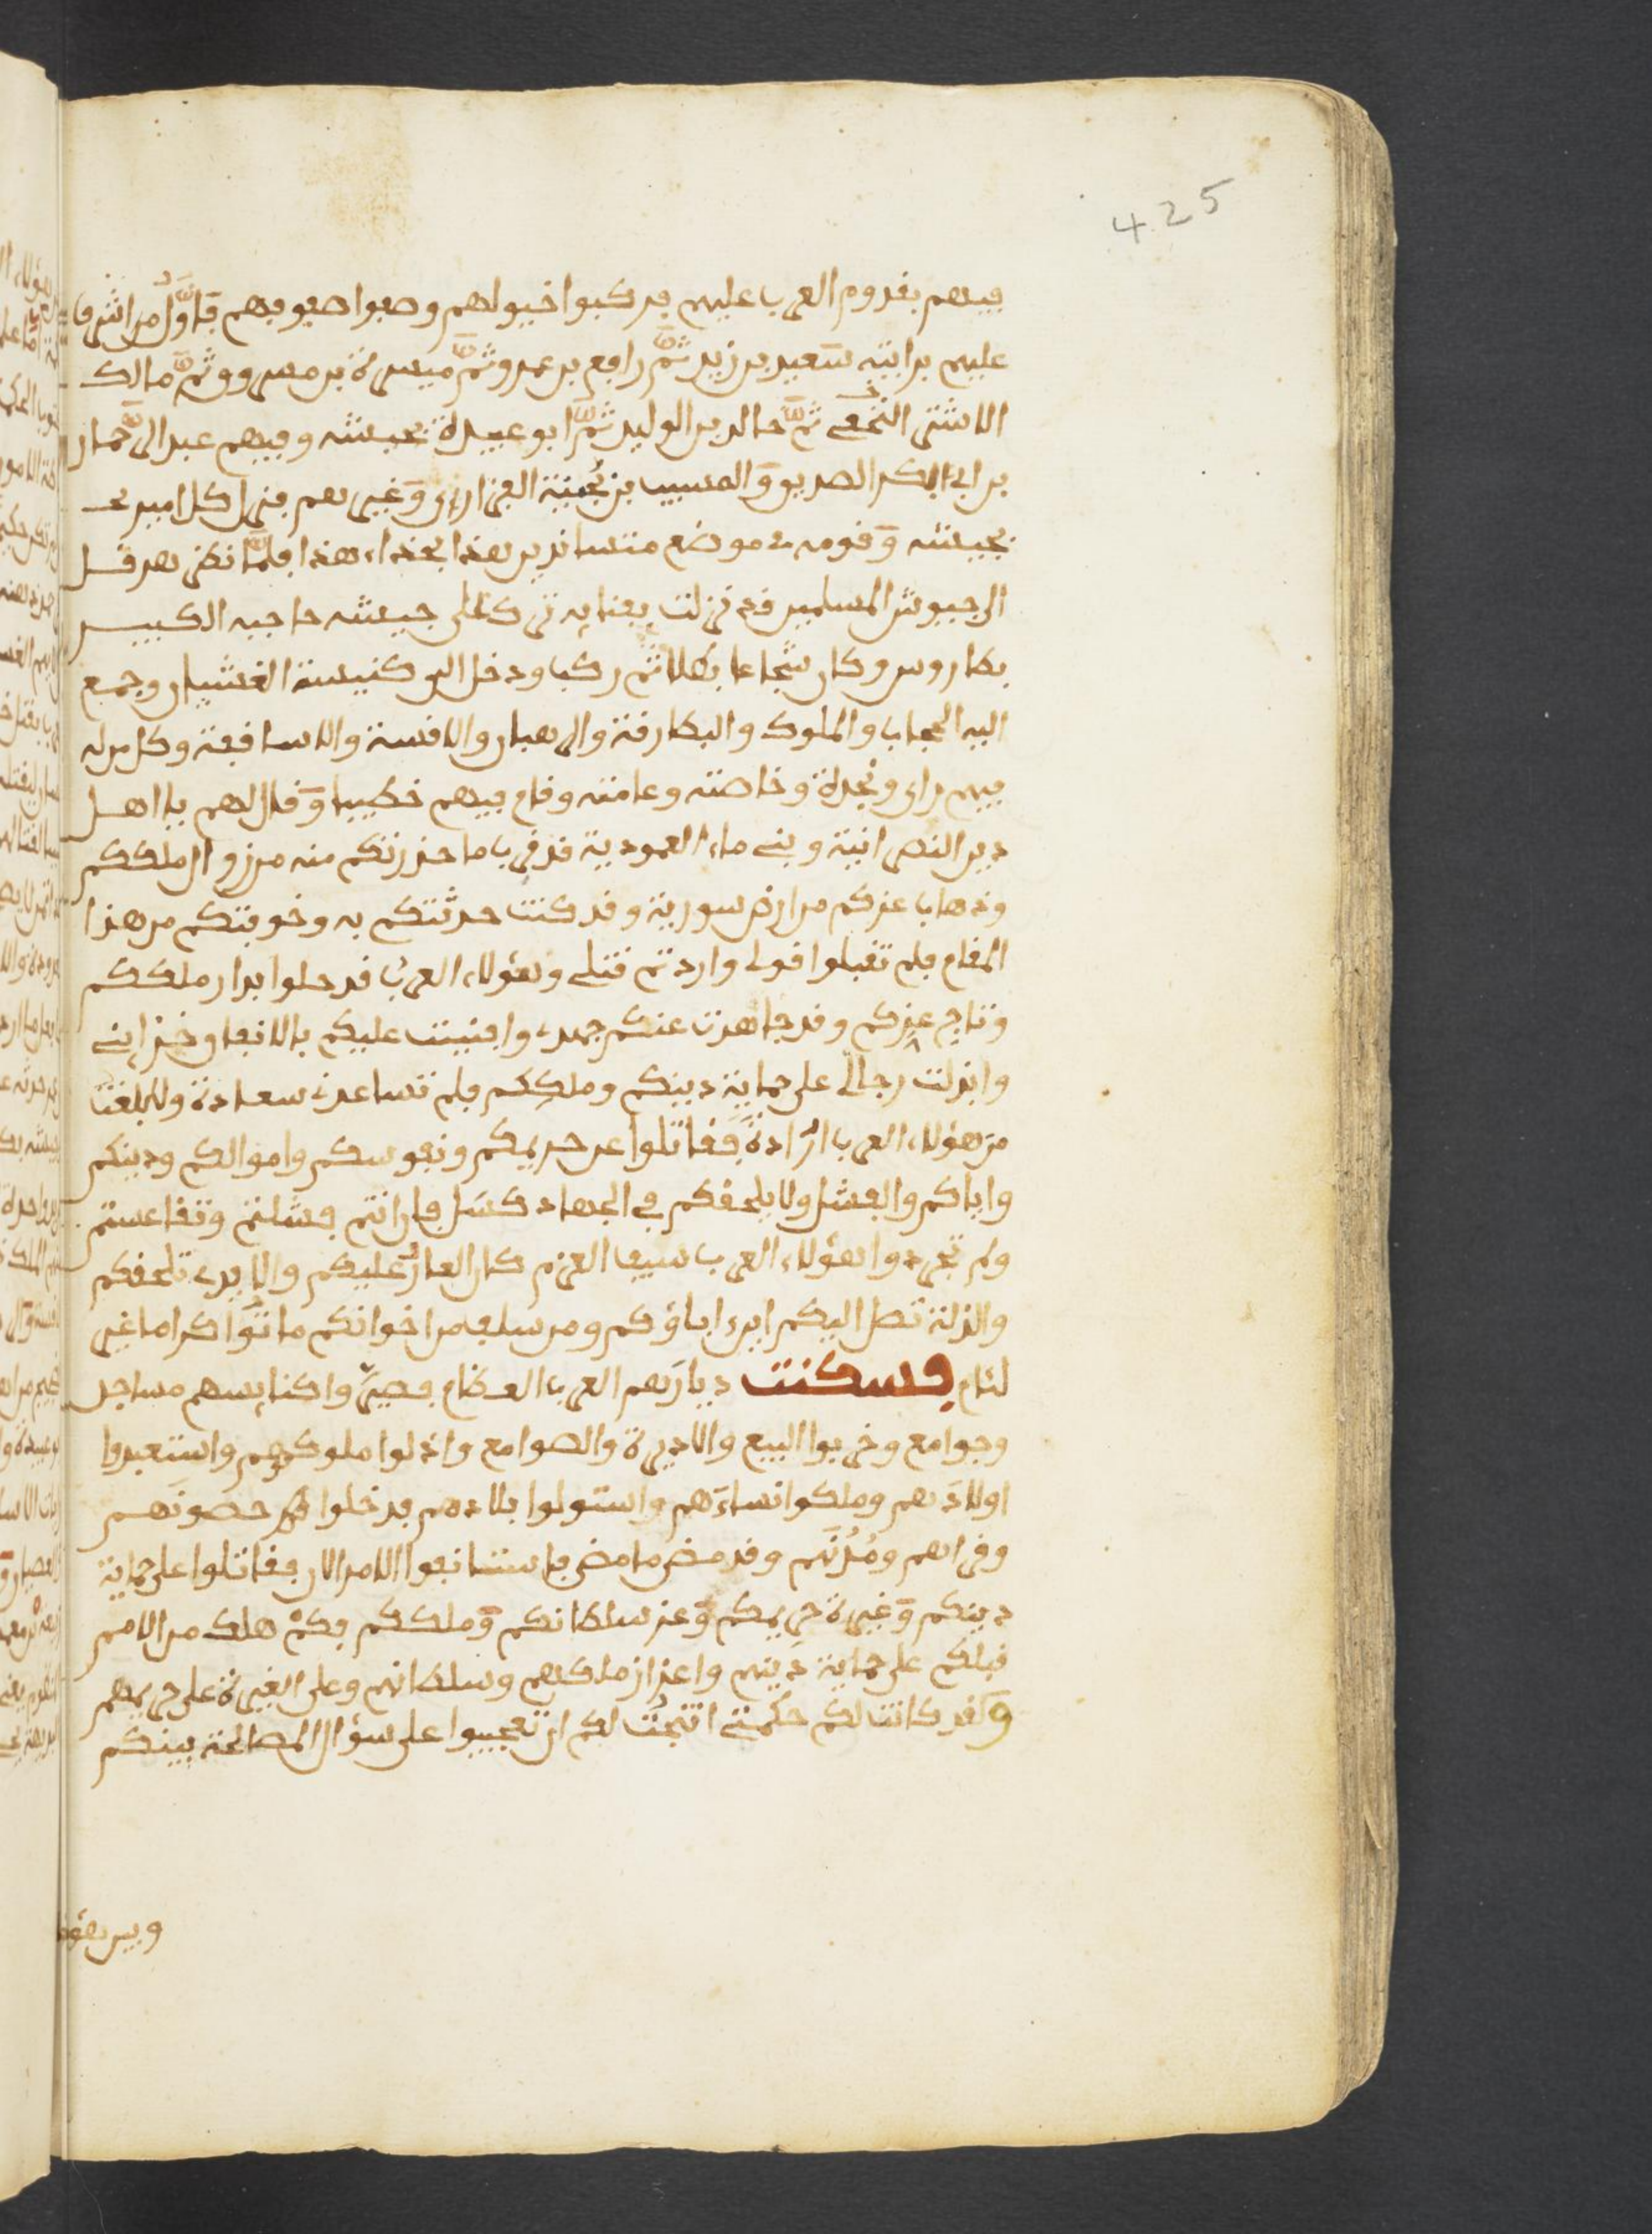 425
فيهم بقدوم العرب عليهم فركبوا خيولهم وصفوا صفوفهم فاول من اشرف
عليهم برايته سعيد بن زيد ثم رافع بن عمرو ثم ميسرة بن مسروق ثم مالك
الاشتر النخعي ثم خالد بن الوليد ثم ابو عبيدة بجيشه وفيهم عبد الرحمان
بن ابي ابكر الصديق والمسيب بن نجيبة الفزاري وغيرهم فنزل كل امير
بجيشه وقومه في موضع هذا بحذاء هذا فلما نظر هرقل
الى جيوش المسلمين قد نزلت بفنايه ترك على جيشه حاجبه الكبير
بطاروس وكان شجاعا بطلا ثم ركب ودخل الى كنيسة القسيان وجمع
اليه الحجاب والملوك والبطارقة والرهبان والاقسة والاساقفة وكل من له
فيهم راى ونجدة وخاصته وعامته وقام فيهم خطيبا وقال لهم يا اهل
دين النصرانية وبني ماء العمودية قد قرب ما حذرتكم منه من زوال ملككم
وذهاب عزكم من ارض سورية وقد كنت حدثتكم به وخوفتكم من هذا
المقام فلم تقبلوا قولي واردتم قتلي وهؤلاء العرب قد حلوا بدار ملككم
وتاج عزكم وقد جاهدت عنكم جهدي وافنيت عليكم بالانفاق خزايني
وانزلت رجالي على حماية دينكم وملككم فلم تساعدني سعادة ولا بلغت
من هؤلاء العرب ارادة فقاتلوا عن حريمكم ونفوسكم واموالكم ودينكم
واياكم والفشل ولا يلحقكم في الجهاد كسل فان انتم فشلتم وتقاعستم
ولم تجردوا لهؤلاء العرب سيف العزم كان العار عليكم والايدي تلحقكم
والذلة تصل اليكم اين اباؤكم ومن سلف من اخوانكم ماتوا كراما غير
لئام فسكنت ديارهم العرب العظام فصيروا كنايسهم مساجد
وجوامع وخربوا البيع والاديرة والصوامع واذلوا ملوكهم واستعبدوا
اولادهم وملكوا نساءهم واستولوا بلادهم فدخلوا حصونهم
وقراهم ومدنهم وقد مضى ما مضى فاستانفوا الامر الان فقاتلوا على حماية
دينكم وغيرة حريمكم وعز سلطانكم وملككم فكم هلك من الامم
قبلكم على حماية دينهم واعزاز ملكهم وسلطانهم وعلى الغيرة على حريمهم
ولقد كانت لكم حكمتي انتجت لكم ان تجيبوا على سؤال المصالحة بينكم
وبين هؤلاء